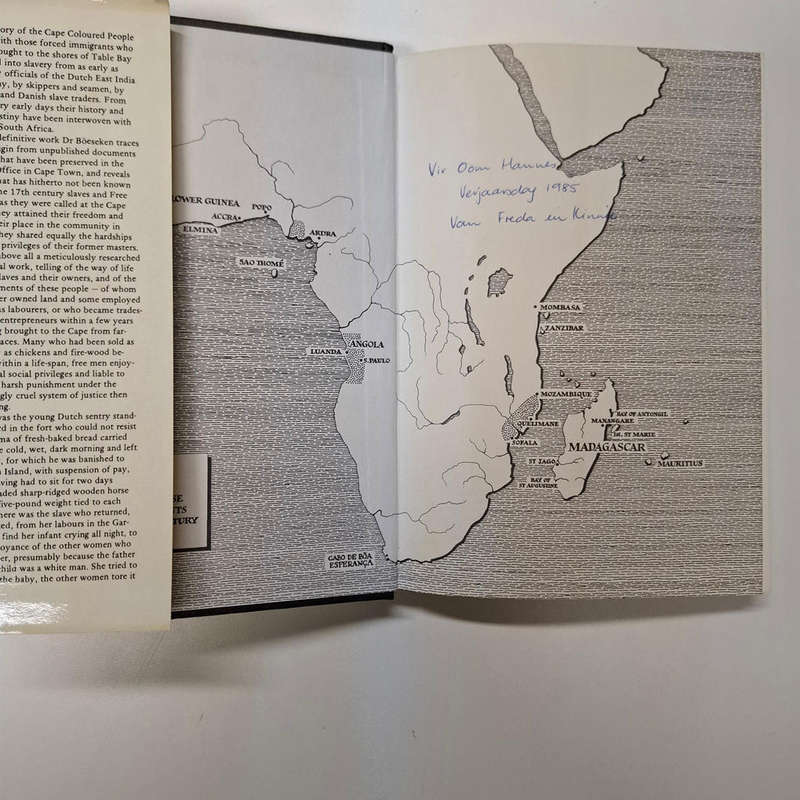 ory of the Cape Coloured People
ith those forced immigrants who
ought to the shores of Table Bay
l into slavery from as early as
officials of the Dutch East India
ny, by skippers and seamen, by
and Danish slave traders. From
ry early days their history and
stiny have been interwoven with
South Africa.
definitive work Dr Böeseken traces
igin from unpublished documents
hat have been preserved in the
Office in Cape Town, and reveals
hat has hitherto not been known
he 17th century slaves and Free
as they were called at the Cape
ey attained their freedom and
eir place in the community in
hey shared equally the hardships
privileges of their former masters.
above all a meticulously researched
al work, telling of the way of life
laves and their owners, and of the
ments of these people — of whom
er owned land and some employed
as labourers, or who became trades-
entrepreneurs within a few years
g brought to the Cape from far-
aces. Many who had been sold as
as chickens and fire-wood be-
within a life-span, free men enjoy-
al social privileges and liable to
harsh punishment under the
gly cruel system of justice then
ng.
was the young Dutch sentry stand-
rd in the fort who could not resist
ma of fresh-baked bread carried
e cold, wet, dark morning and left
, for which he was banished to
n Island, with suspension of pay,
aving had to sit for two days
aded sharp-ridged wooden horse
five-pound weight tied to each
here was the slave who returned,
ed, from her labours in the Gar-
find her infant crying all night, to
oyance of the other women who
er, presumably because the father
child was a white man. She tried to
the baby, the other women tore it
LOWER GUINEA
POPO
ACCRA
ELMINA
ARDRA
SAO THOMÉ
ANGOLA
LUANDA
S. PAULO
SE
TS
TURY
CABO DE BÕA
ESPERANÇA
Vir Oom Hannes
Verjaarsdag 1985
Van Freda en
MOMBASA
ZANZIBAR
MOZAMBIQUE
QUELIMANE
SOFALA
BAY OF ANTONGIL
MANANGARE
ISL ST MARIE
MADAGASCAR
ST JAGO
MAURITIUS
BAY OF
ST AUGUSTINE